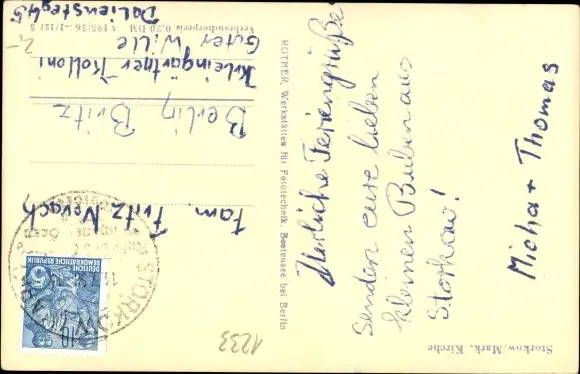 Storkow/Mark. Kirche
Herliche Feriengrüße
Senden eure lieben
kleinen Buben aus
Storkow!
Micha + Thomas
ROTHER, Werkstätten für Fototechnik, Bestensee bei Berlin
Verbraucherpreis 0,20 DM A 195/56 -1/127 S
1233
2,-
DEUTSCHE
DEMOKRATISCHE REPUBLIK
10
STORKOW (MARK)
Fam. Fritz Nevach
Berlin Britz
Kleingärtner Kolloni
Guter Wille
Daliensteg 45